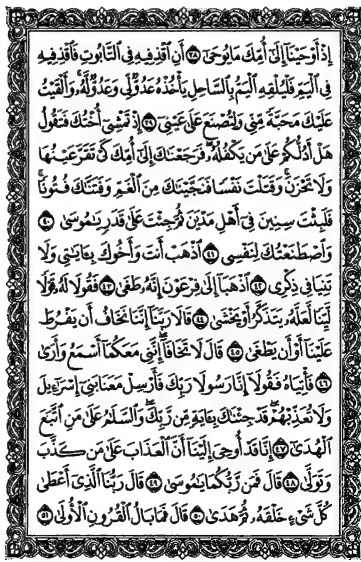 إِذْ أَوْحَيْنَا إِلَىٰ أُمِّكَ مَا يُوحَىٰ ٣٨ أَنِ اقْذِفِيهِ فِي التَّابُوتِ فَاقْذِفِيهِ
فِي الْيَمِّ فَلْيُلْقِهِ الْيَمُّ بِالسَّاحِلِ يَأْخُذْهُ عَدُوٌّ لِّي وَعَدُوٌّ لَّهُۥ وَأَلْقَيْتُ
عَلَيْكَ مَحَبَّةً مِّنِّي وَلِتُصْنَعَ عَلَىٰ عَيْنِي ٣٩ إِذْ تَمْشِي أُخْتُكَ فَتَقُولُ
هَلْ أَدُلُّكُمْ عَلَىٰ مَن يَكْفُلُهُۥ فَرَجَعْنَاكَ إِلَىٰ أُمِّكَ كَيْ تَقَرَّ عَيْنُهَا
وَلَا تَحْزَنَ وَقَتَلْتَ نَفْسًا فَنَجَّيْنَاكَ مِنَ الْغَمِّ وَفَتَنَّاكَ فُتُونًا
فَلَبِثْتَ سِنِينَ فِي أَهْلِ مَدْيَنَ ثُمَّ جِئْتَ عَلَىٰ قَدَرٍ يَٰمُوسَىٰ ٤٠
وَاصْطَنَعْتُكَ لِنَفْسِي ٤١ اذْهَبْ أَنتَ وَأَخُوكَ بِـَٔايَٰتِي وَلَا
تَنِيَا فِي ذِكْرِي ٤٢ اذْهَبَا إِلَىٰ فِرْعَوْنَ إِنَّهُۥ طَغَىٰ ٤٣ فَقُولَا لَهُۥ قَوْلًا
لَّيِّنًا لَّعَلَّهُۥ يَتَذَكَّرُ أَوْ يَخْشَىٰ ٤٤ قَالَا رَبَّنَا إِنَّنَا نَخَافُ أَن يَفْرُطَ
عَلَيْنَا أَوْ أَن يَطْغَىٰ ٤٥ قَالَ لَا تَخَافَا إِنَّنِي مَعَكُمَا أَسْمَعُ وَأَرَىٰ
٤٦ فَأْتِيَاهُ فَقُولَا إِنَّا رَسُولَا رَبِّكَ فَأَرْسِلْ مَعَنَا بَنِي إِسْرَٰٓءِيلَ
وَلَا تُعَذِّبْهُمْ قَدْ جِئْنَاكَ بِـَٔايَةٍ مِّن رَّبِّكَ وَالسَّلَٰمُ عَلَىٰ مَنِ اتَّبَعَ
الْهُدَىٰ ٤٧ إِنَّا قَدْ أُوحِيَ إِلَيْنَا أَنَّ الْعَذَابَ عَلَىٰ مَن كَذَّبَ
وَتَوَلَّىٰ ٤٨ قَالَ فَمَن رَّبُّكُمَا يَٰمُوسَىٰ ٤٩ قَالَ رَبُّنَا الَّذِي أَعْطَىٰ
كُلَّ شَيْءٍ خَلْقَهُۥ ثُمَّ هَدَىٰ ٥٠ قَالَ فَمَا بَالُ الْقُرُونِ الْأُولَىٰ ٥١